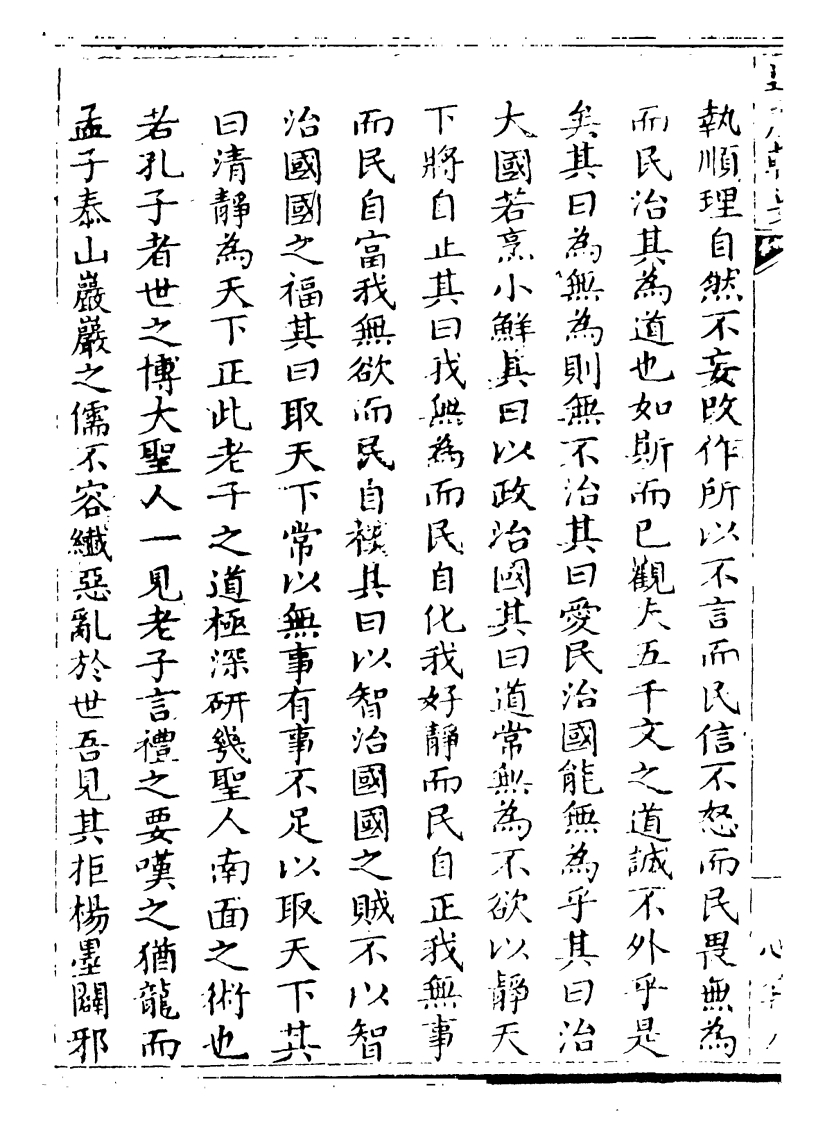 執順理自然不妄改作所以不言而民信不怒而民畏無為
而民治其為道也如斯而已觀夫五千文之道誠不外乎是
矣其曰為無為則無不治其曰愛民治國能無為乎其曰治
大國若烹小鮮其曰以政治國其曰道常無為不欲以靜天
下將自止其曰我無為而民自化我好靜而民自正我無事
而民自富我無欲而民自樸其曰以智治國國之賊不以智
治國國之福其曰取天下常以無事有事不足以取天下其
曰清靜為天下正此老子之道極深研幾聖人南面之術也
若孔子者世之博大聖人一見老子言禮之要嘆之猶龍而
孟子泰山巖巖之儒不容纖惡亂於世吾見其拒楊墨闢邪